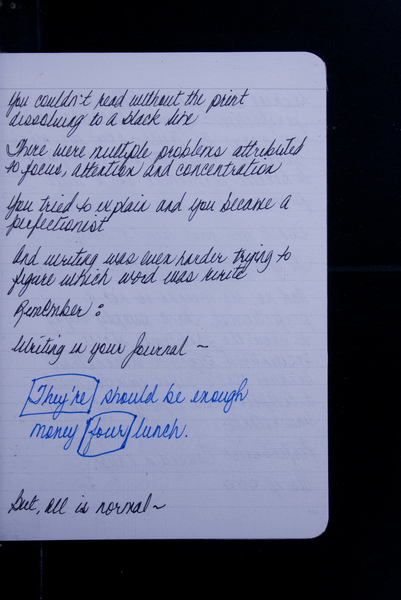 You couldn't read without the print
dissolving to a black line
There were multiple problems attributed
to focus, attention and concentration
You tried to explain and you became a
perfectionist
And writing was even harder trying to
figure which word was write
Remember:
Writing in your Journal ~
They're should be enough
money four lunch.
But, all is normal ~